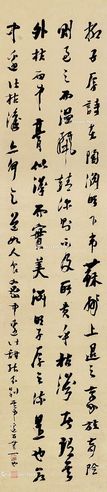 柳子厚詩在陶淵明下韋蘇州上退之豪放奇險
則過之而溫麗靖深不及也所貴乎枯澹者謂其
外枯而中膏似澹而實美淵明子厚之流是也若
中邊皆枯澹亦何足道如人食蜜中邊皆甜